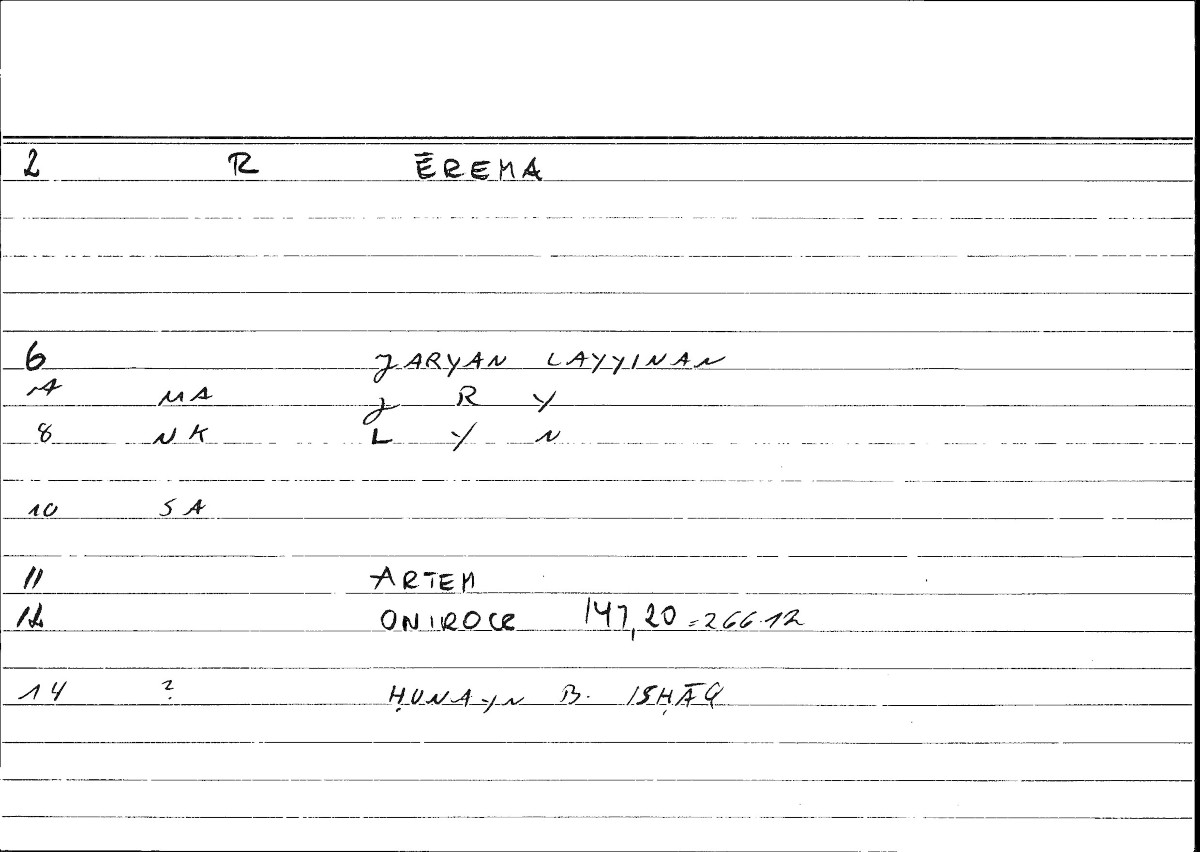 2 R ĒREMA
6 JARYAN LAYYINAN
MA J R Y
8 NK L Y N
10 SA
11 ARTEM
12 ONIROCR 147,20 = 266.12
14 ? ḤUNAYN B. ISḤĀQ